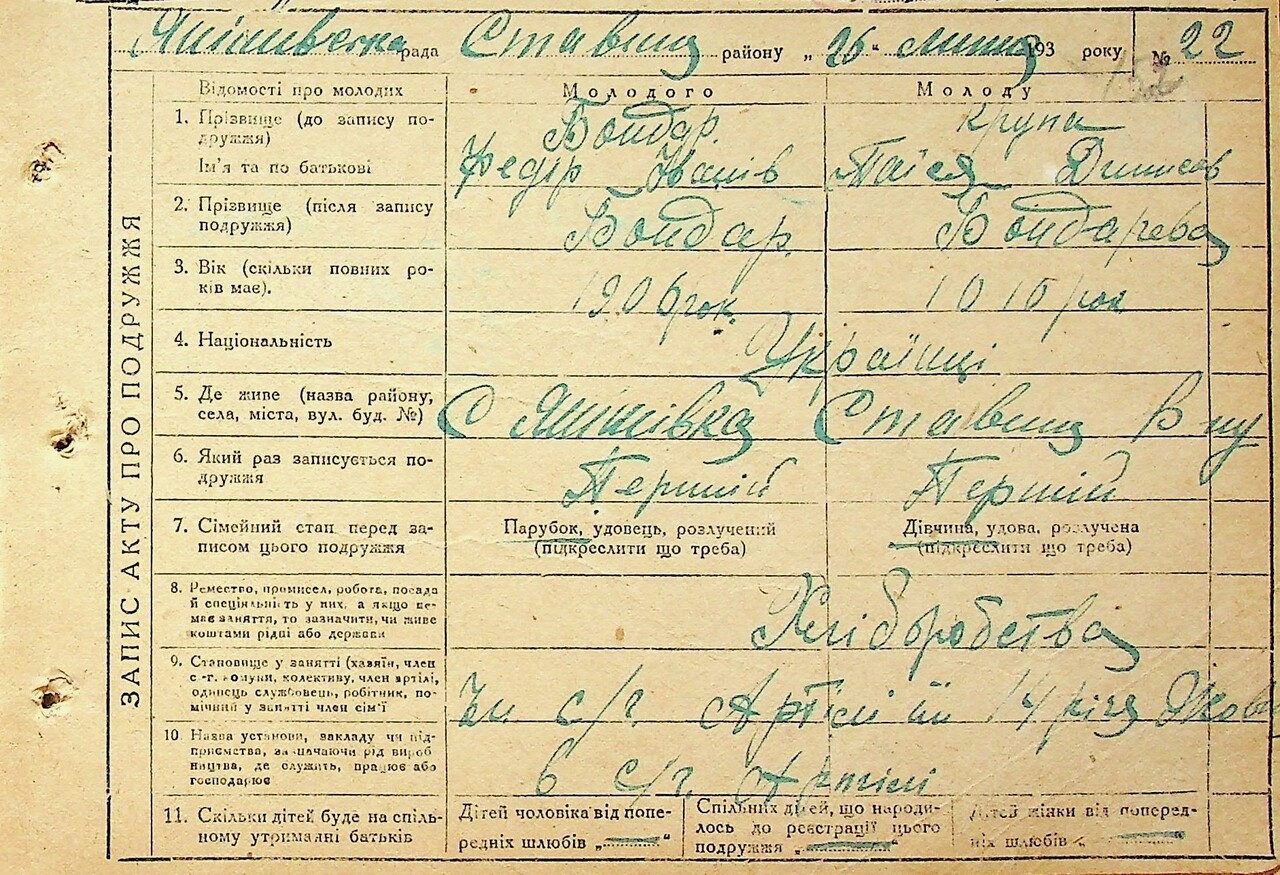 рада Ставищ району „26“ липня 193 року № 22
152
ЗАПИС АКТУ ПРО ПОДРУЖЖЯ
Відомості про молодих
Молодого
Молоду
1. Прізвище (до запису по-
дружжя)
Ім'я та по батькові
Бондар
Федір Іванів
Крупа
Таїся Денисов
2. Прізвище (після запису
подружжя)
Бондар
Бондарева
3. Вік (скільки повних ро-
ків має).
1906 рок.
1910 рок
4. Національність
Українці
5. Де живе (назва району,
села, міста, вул. буд. №)
С Ставищ
6. Який раз записується по-
дружжя
Перший
Перший
7. Сімейний стан перед за-
писом цього подружжя
Парубок, удовець, розлучений
(підкреслити що треба)
Дівчина, удова, розлучена
(підкреслити що треба)
8. Ремество, промисел, робота, посада
й спеціяльність у них, а якщо не-
має заняття, то зазначити, чи живе
коштами рідні або держави
Хліборобства
9. Становище у занятті (хазяїн, член
с.-г. комуни, колективу, член артілі,
одинець службовець, робітник, по-
мічний у занятті член сім'ї
Чл с/г. Артілі 14 річя Жов
10. Назва установи, закладу чи під-
приємства, зазначаючи рід вироб
ництва, де служить, працює або
господарює
в с/г Артілі
11. Скільки дітей буде на спіль-
ному утриманні батьків
Дітей чоловіка від попе-
редніх шлюбів „—“
Спільних дітей, що народи-
лось до реєстрації цього
подружжя „—“
Дітей жінки від поперед-
ніх шлюбів „—“